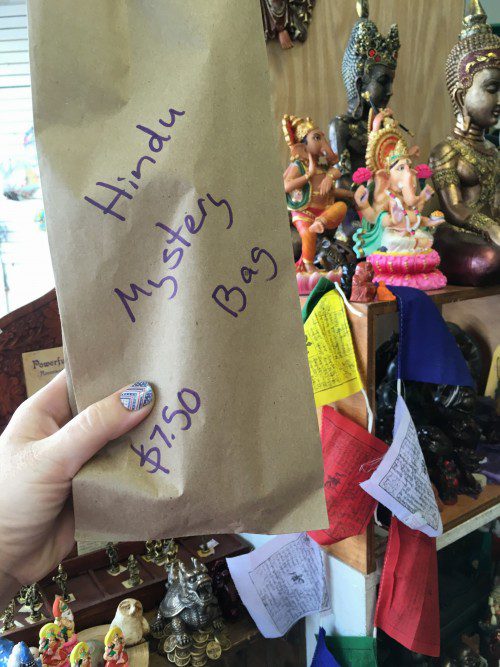 Hindu
Mystery
Bag
$7.50
Powerful